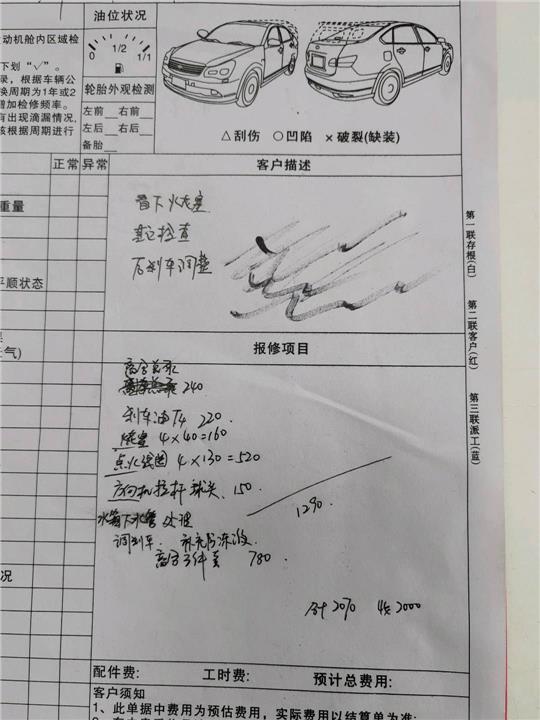 油位状况
动机舱内区域检
0 1/2 1/1
下划“√”。
录，根据车辆公
换周期为1年或2
增加检修频率。
有出现滴漏情况,
该根据周期进行
轮胎外观检测
左前 右前
左后 右后
备胎
△刮伤 ○凹陷 ×破裂(缺装)
正常 异常
客户描述
查下火花塞
检查
后刹车调整
重量
平顺状态
第一联存根(白)
第二联客户(红)
第三联派工(蓝)
报修项目
240
刹车油T4 220
4×40=160
点火线圈 4×130=520
方向机拉杆球头、150
1290
水箱下水管处理
调刹车、补充防冻液
780
合计2070 收2000
天气)
况
配件费: 工时费: 预计总费用:
客户须知
1、此单据中费用为预估费用，实际费用以结算单为准;